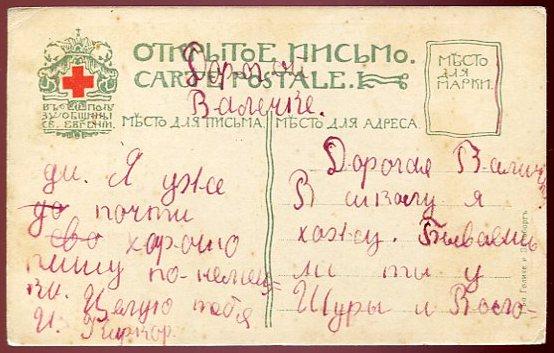 ОТКРЫТОЕ ПИСЬМО.
CARTE POSTALE.
МѢСТО
ДЛЯ
МАРКИ.
ВЪ ПОЛЬЗУ
ОБЩИНЫ
СВ. ЕВГЕНІИ.
Дорогой
Валечке.
МѢСТО ДЛЯ ПИСЬМА.
МѢСТО ДЛЯ АДРЕСА.
Дорогая
В школу я
хожу. Бываешь
ли ты у
Шуры и Восо-
ди. Я уже
до почти
ево хорошо
пишу по-немец=
ки. Целую тебя
И. Киркор.
Голике и